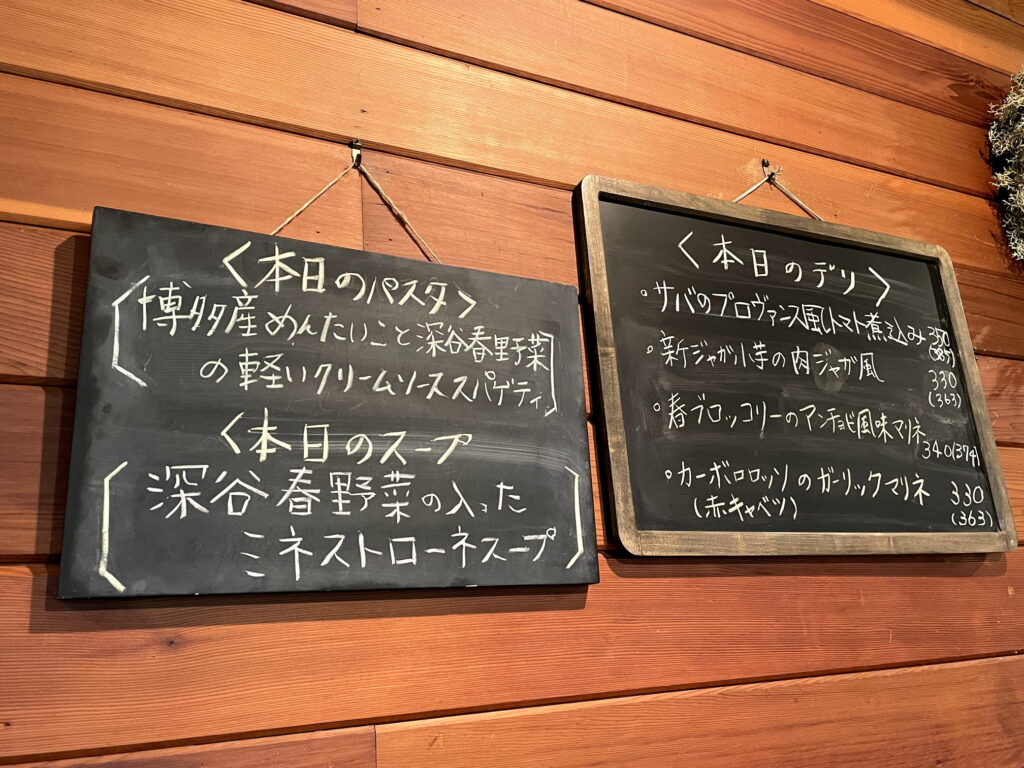 ＜本日のパスタ＞
博多産めんたいこと深谷春野菜
の軽いクリームソーススパゲティ
＜本日のスープ
深谷春野菜の入った
ミネストローネスープ
＜本日のデリ＞
・サバのプロヴァンス風(トマト煮込み
・新ジャガ小芋の肉ジャガ風
330
(363)
・春ブロッコリーのアンチョビ風味マリネ
340(374)
・カーボロロッソのガーリックマリネ 330
(赤キャベツ) (363)